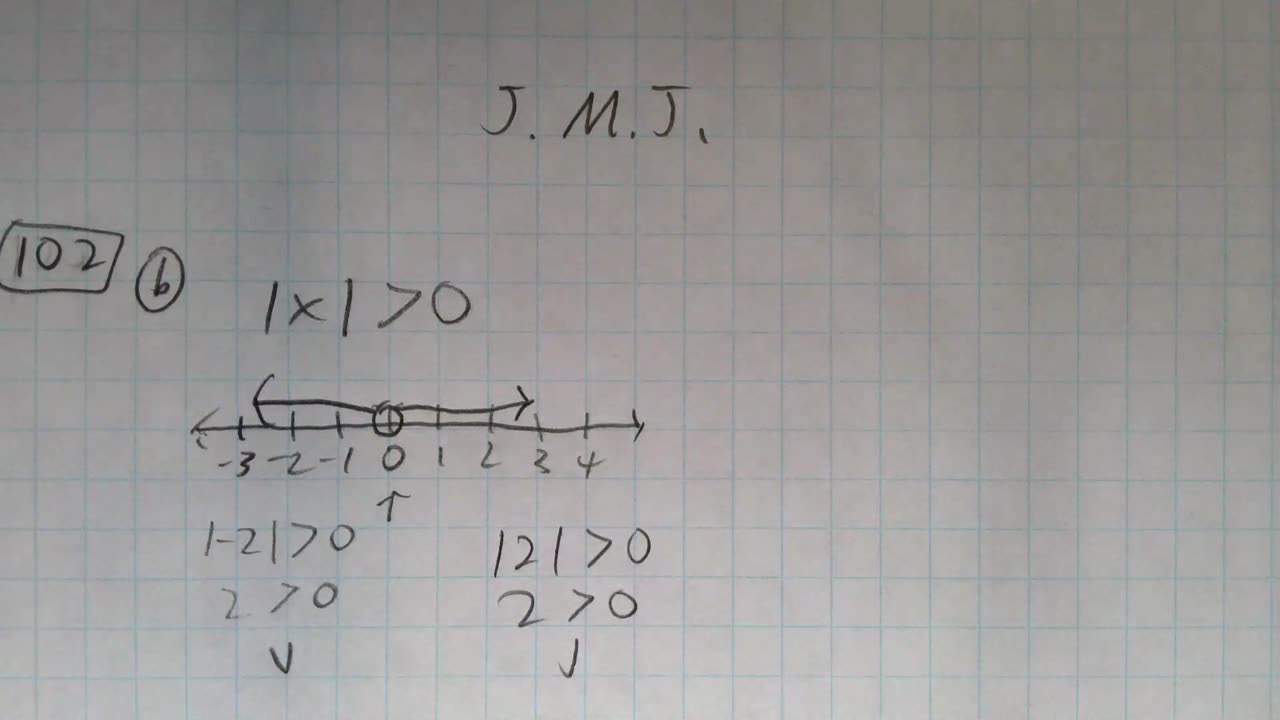 J. M. J.
102 b |x| > 0
-3 -2 -1 0 1 2 3 4
↑
|-2| > 0 |2| > 0
2 > 0 2 > 0
✓ ✓